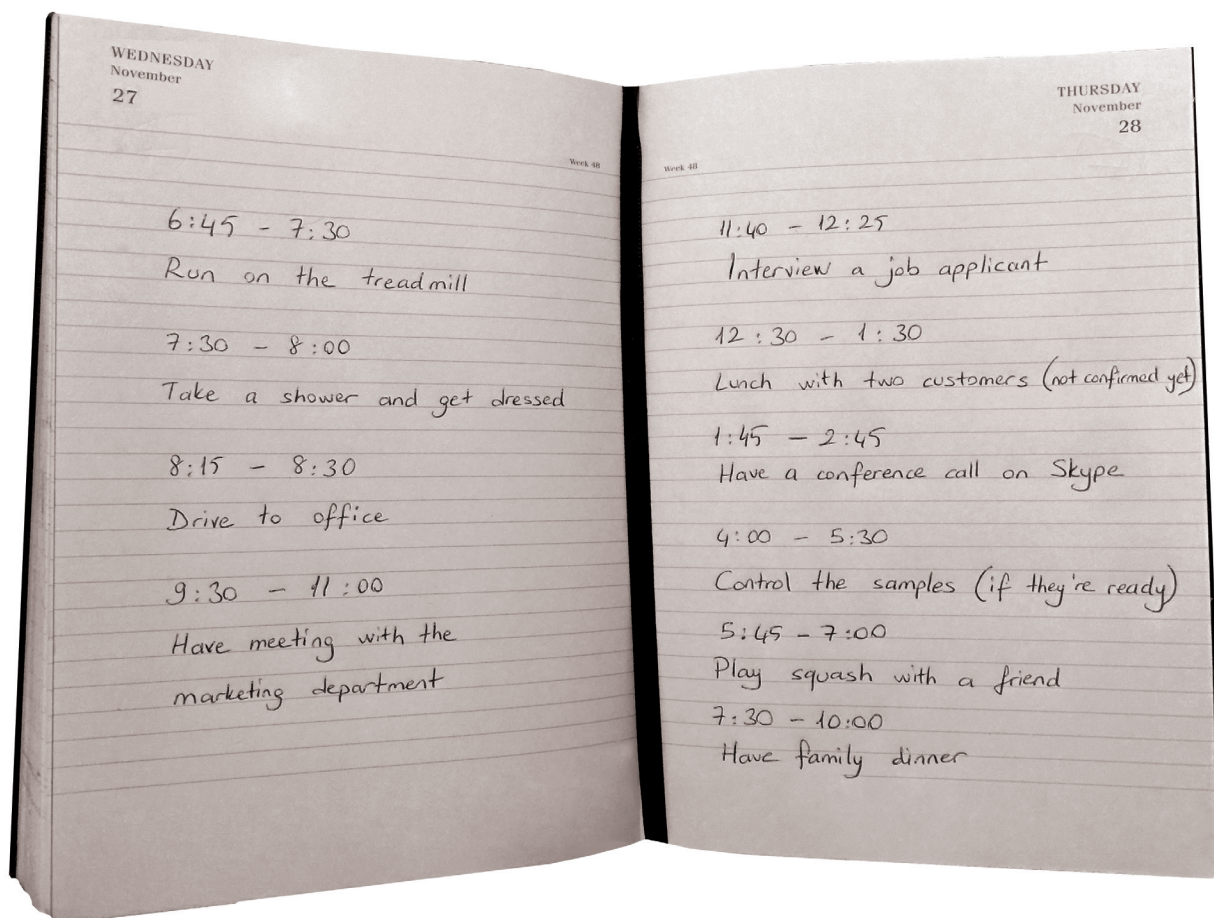 WEDNESDAY
November
27
Week 48
6:45 - 7:30
Run on the treadmill
7:30 - 8:00
Take a shower and get dressed
8:15 - 8:30
Drive to office
9:30 - 11:00
Have meeting with the
marketing department
THURSDAY
November
28
Week 48
11:40 - 12:25
Interview a job applicant
12:30 - 1:30
Lunch with two customers (not confirmed yet)
1:45 - 2:45
Have a conference call on Skype
4:00 - 5:30
Control the samples (if they're ready)
5:45 - 7:00
Play squash with a friend
7:30 - 10:00
Have family dinner